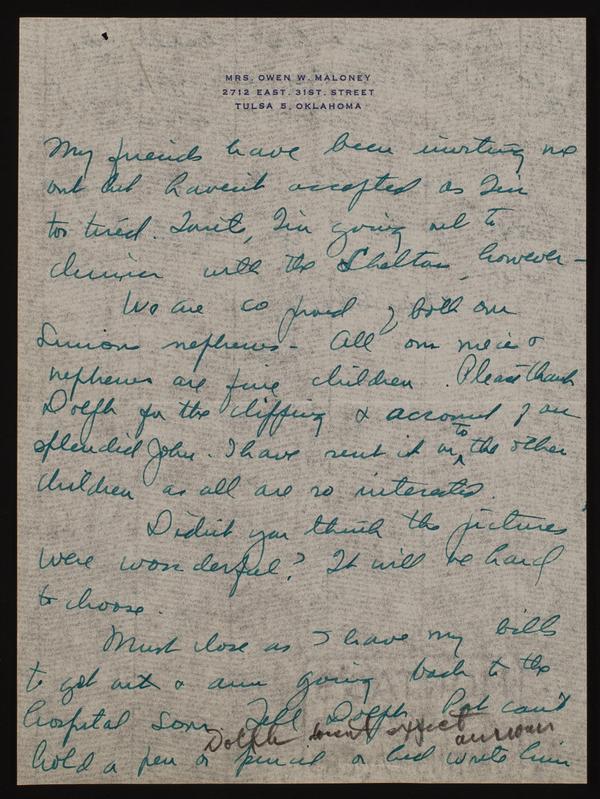 MRS. OWEN W. MALONEY
2712 EAST. 31ST. STREET
TULSA 5, OKLAHOMA
My friends have been inviting me
out but haven't accepted as I'm
too tired. Tonite, I'm going out to
dinner with the Sheltons, however –
We are so proud of both our
Simons nephews – All our nieces &
nephews are fine children. Please thank
Dolph for the clipping & account of our
splendid John. I have sent it on to the other
children as all are so interested.
Didn't you think the pictures
were wonderful? It will be hard
to choose.
Must close as I have my bills
to get out & am going back to the
hospital soon. Tell Dolph Pat can't
hold a pen or pencil or he'd write him
Dolph won't expect answer